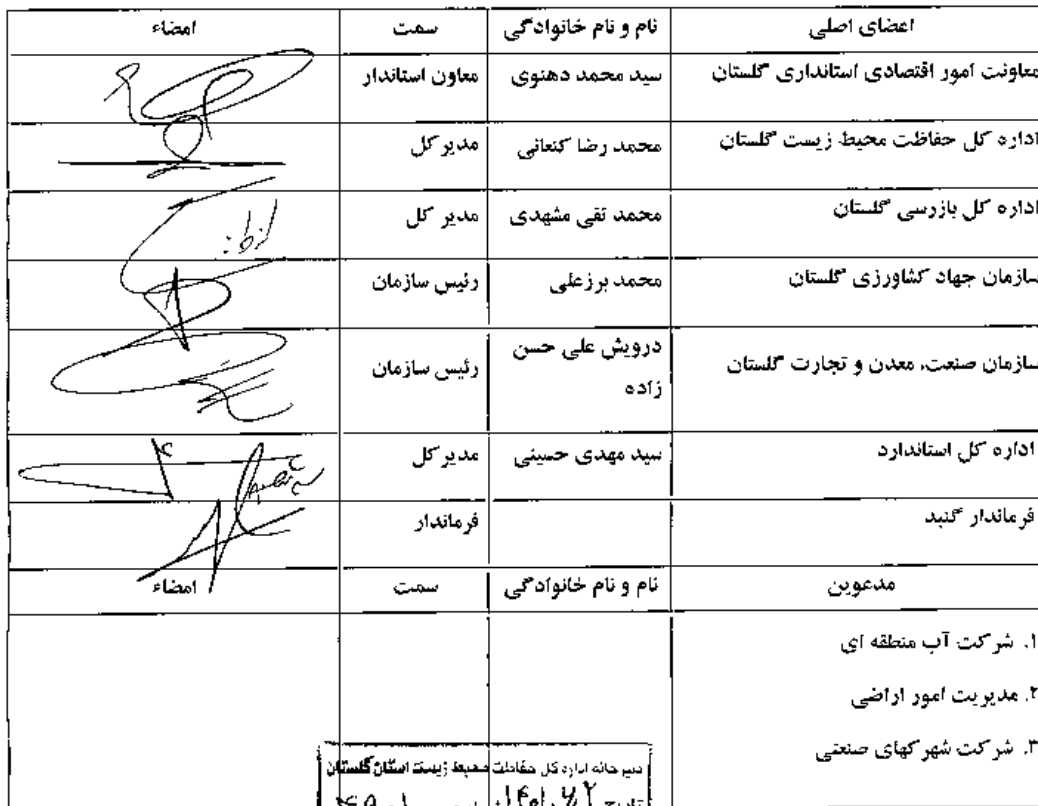 اعضای اصلی نام و نام خانوادگی سمت امضاء
معاونت امور اقتصادی استانداری گلستان سید محمد دهنوی معاون استاندار
اداره کل حفاظت محیط زیست گلستان محمد رضا کنعانی مدیر کل
اداره کل بازرسی گلستان محمد تقی مشهدی مدیر کل
سازمان جهاد کشاورزی گلستان محمد برزعلی رئیس سازمان
سازمان صنعت، معدن و تجارت گلستان درویش علی حسن رئیس سازمان
زاده
اداره کل استاندارد سید مهدی حسینی مدیر کل
فرماندار گنبد فرماندار
مدعوین نام و نام خانوادگی سمت امضاء
۱. شرکت آب منطقه ای
۲. مدیریت امور اراضی
۳. شرکت شهرکهای صنعتی
دبیرخانه اداره کل حفاظت محیط زیست استان گلستان
تاریخ